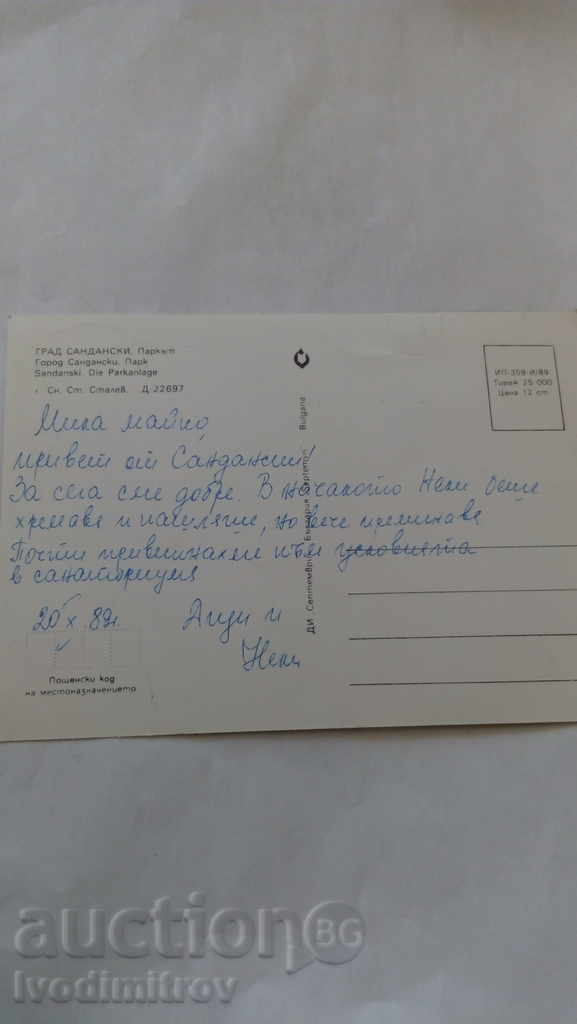 ГРАД САНДАНСКИ. Паркът
Город Сандански. Парк
Sandanski. Die Parkanlage
Сн. Ст. Сталев. Д-22697
Мила майко,
привет от Сандански!
За сега сме добре. В началото Нели беше
хремава и покашляше, но вече преминава
Почти привикнахме към условията
в санаториума
20 X 89г.
Анди и
Нели
Пощенски код
на местоназначението
ДИ Септември България Картпром Bulgaria
ИП-359-И/89
Тираж 25 000
Цена 12 ст.
auctionBG
Ivodimitrov